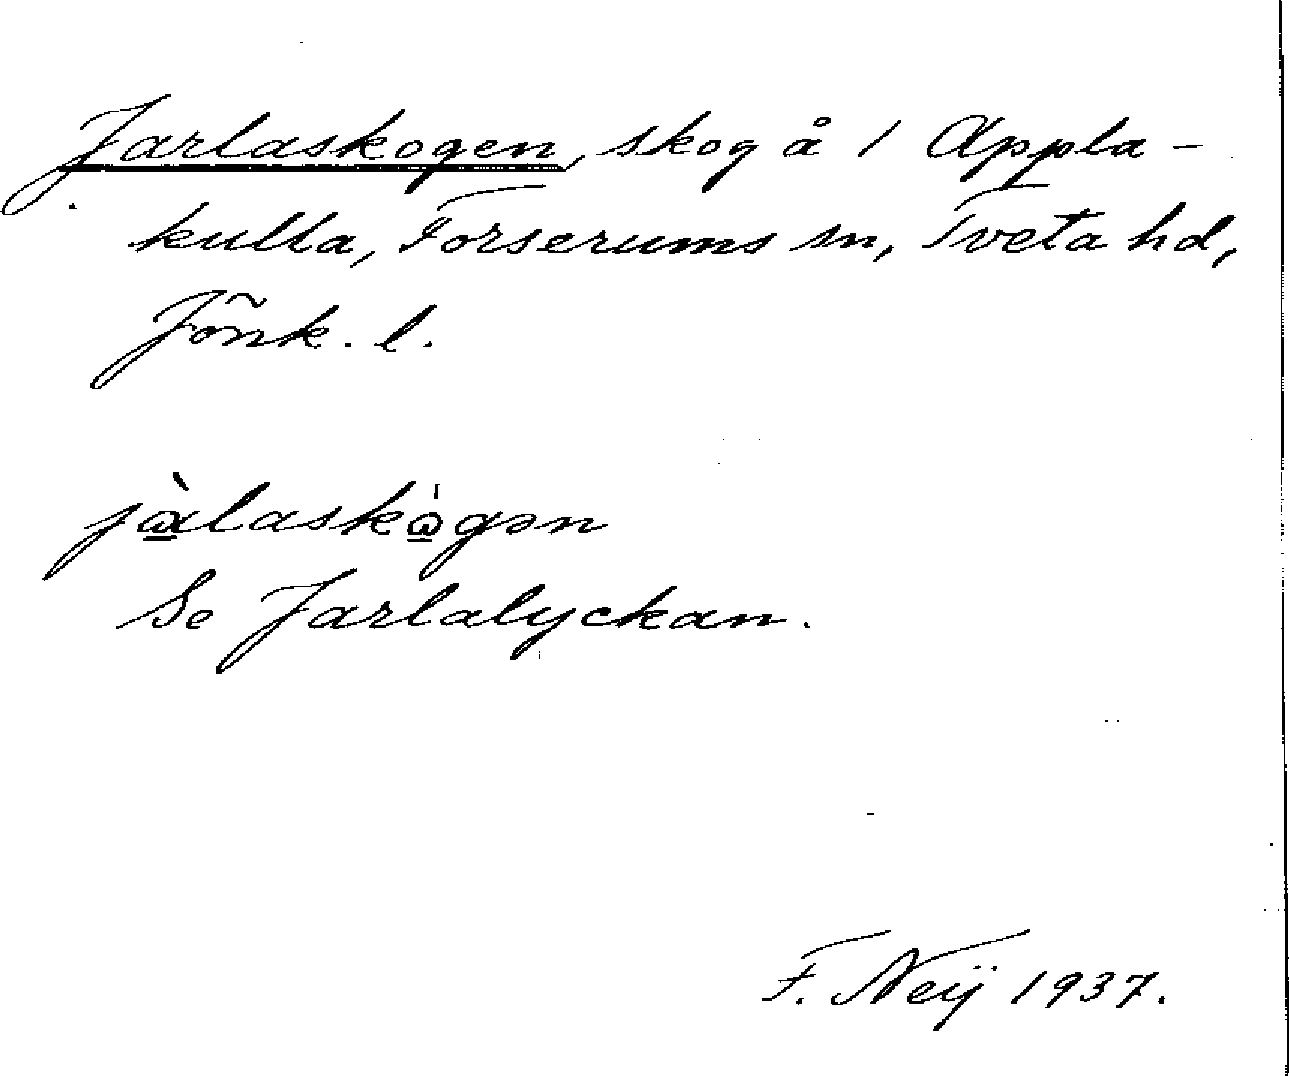 Jarlaskogen, skog å 1 Appla-
kulla, Forserums sn, Tveta hd,
Jönk. l.
jɑ̀laskɷ̀gən
Se Jarlalyckan.
F. Neij 1937.